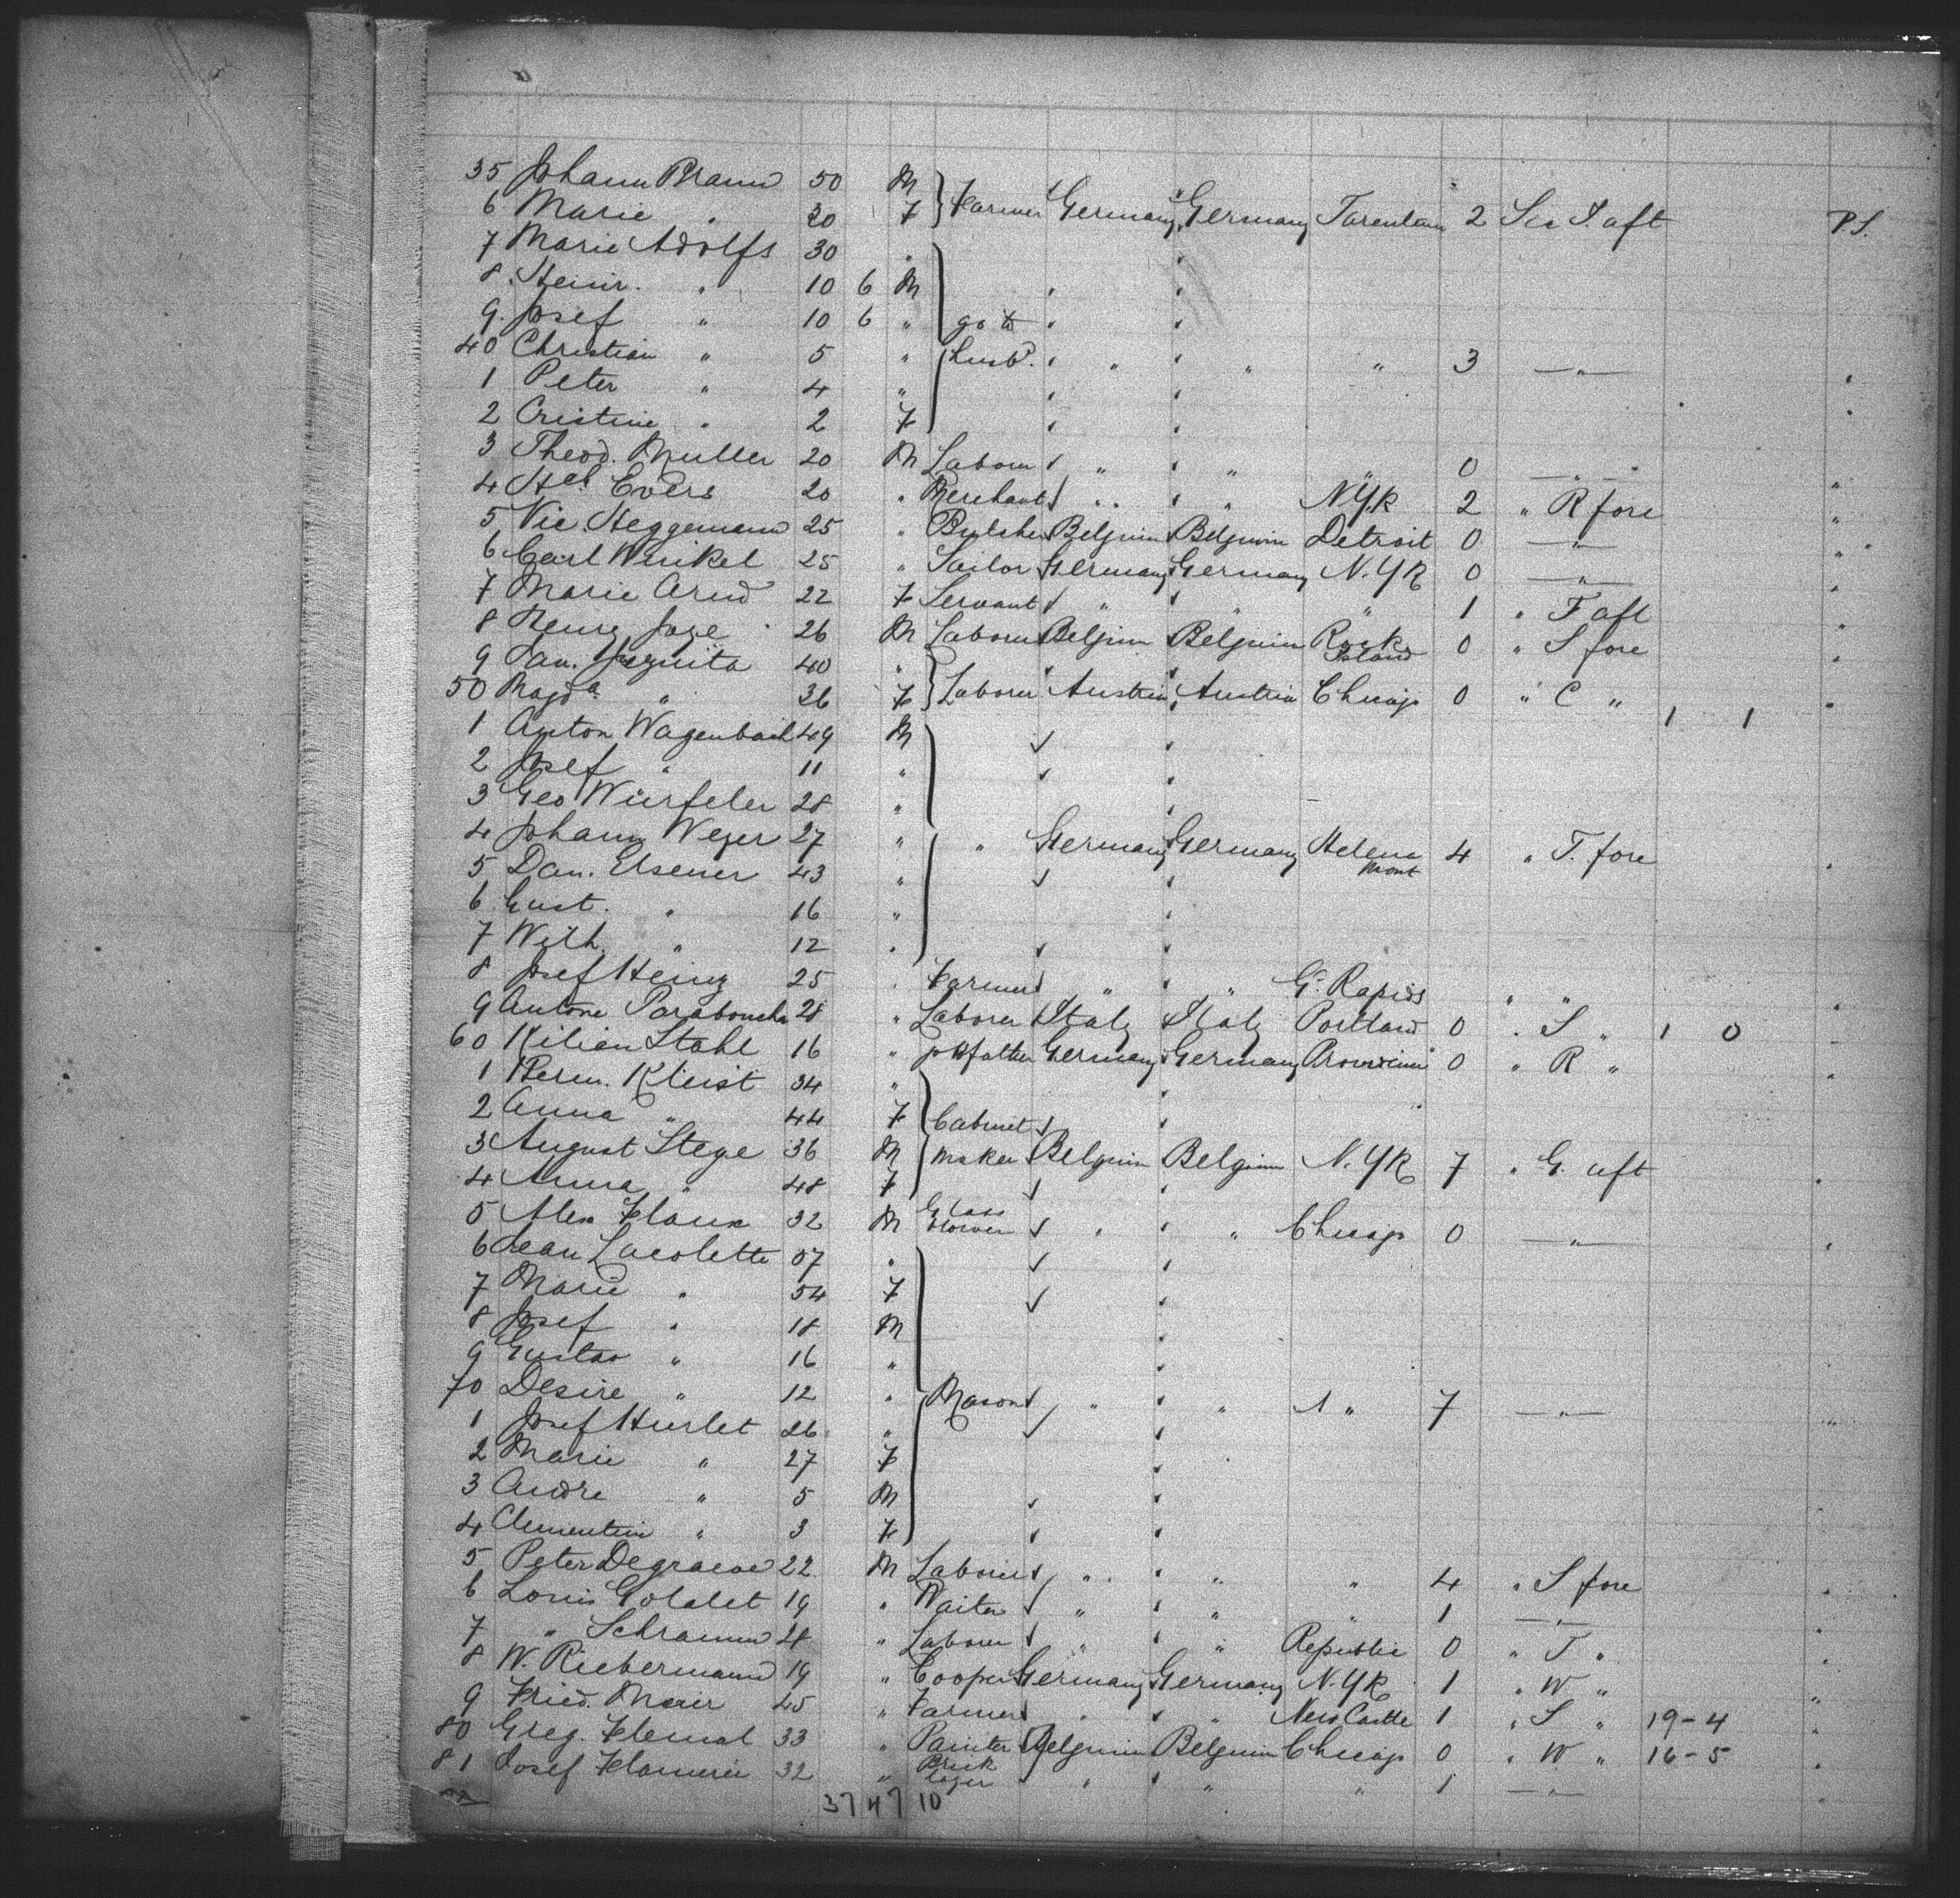 35 Johann Braun 50 M
6 Marie " 20 F Farmer Germany Germany Tarentum 2 Sec S. aft P.S.
7 Marie Adolfs 30 "
8 Heinr. " 10 6 M
9 Josef " 10 6 " go to
40 Christian " 5 " husbd. " " 3 — " —
1 Peter " 4 "
2 Cristine " 2 F
3 Theod. Muller 20 M Laborer " " " 0 — " —
4 Hch Evers 20 " Merchant " " N.Y.k 2 " R fore
5 Vic. Heggemann 25 " Butcher Belgium Belgium Detroit 0 — " —
6 Carl Winkel 25 " Sailor Germany Germany N.Yk 0 — " —
7 Marie Arnd 22 F Servant " " " 1 " F aft
8 26 M Laborer Belgium Belgium Rock Island 0 " S fore
9 40 "
50 Magda " 36 F Laborer Austria Austria Chicago 0 " C " 1 1
1 Anton Wagenbach 49 M
2 Josef " 11 "
3 Geo Würfeler 28 "
4 Johann Weyer 27 " " Germany Germany Helena Mont 4 " T. fore
5 Dan. Elsener 43 "
6 Gust. " 16 "
7 Wilh " 12 "
8 Josef Heinz 25 " Farmer " " Gd. Rapids " "
9 Antone 28 " Laborer Italy Italy Portland 0 " S " 1 0
60 Kilian Stahl 16 " Germany Germany 0 " R "
1 Herm. Kleist 34 "
2 Anna " 44 F Cabinet
3 August Stege 36 M maker Belgium Belgium N.Yk 7 " G. aft
4 Anna " 48 F
5 Alex 32 M Glass blower " " Chicago 0 — " —
6 Jean Lacolette 57 "
7 Marie " 54 F
8 Josef " 18 M
9 Gustav " 16 "
70 Desire " 12 " Mason " " " 7 — " —
1 Josef Hurlet 26 "
2 Marie " 27 F
3 Andre " 5 M
4 Clementine " 3 F
5 Peter Degraeve 22 M Laborer " " " 4 " S fore
6 Louis 19 " Waiter " " " 1 — " —
7 " Schramm 28 " Laborer " " Republic 0 " T "
8 W. Riebermann 19 " Cooper Germany Germany N.Yk 1 " W "
9 Fried. Meier 45 " Farmer " " New Castle 1 " S " 19-4
80 Greg. Flemal 33 " Painter Belgium Belgium Chicago 0 " W " 16-5
81 Josef 32 " Brick layer " " " 1 — " —
37 47 10